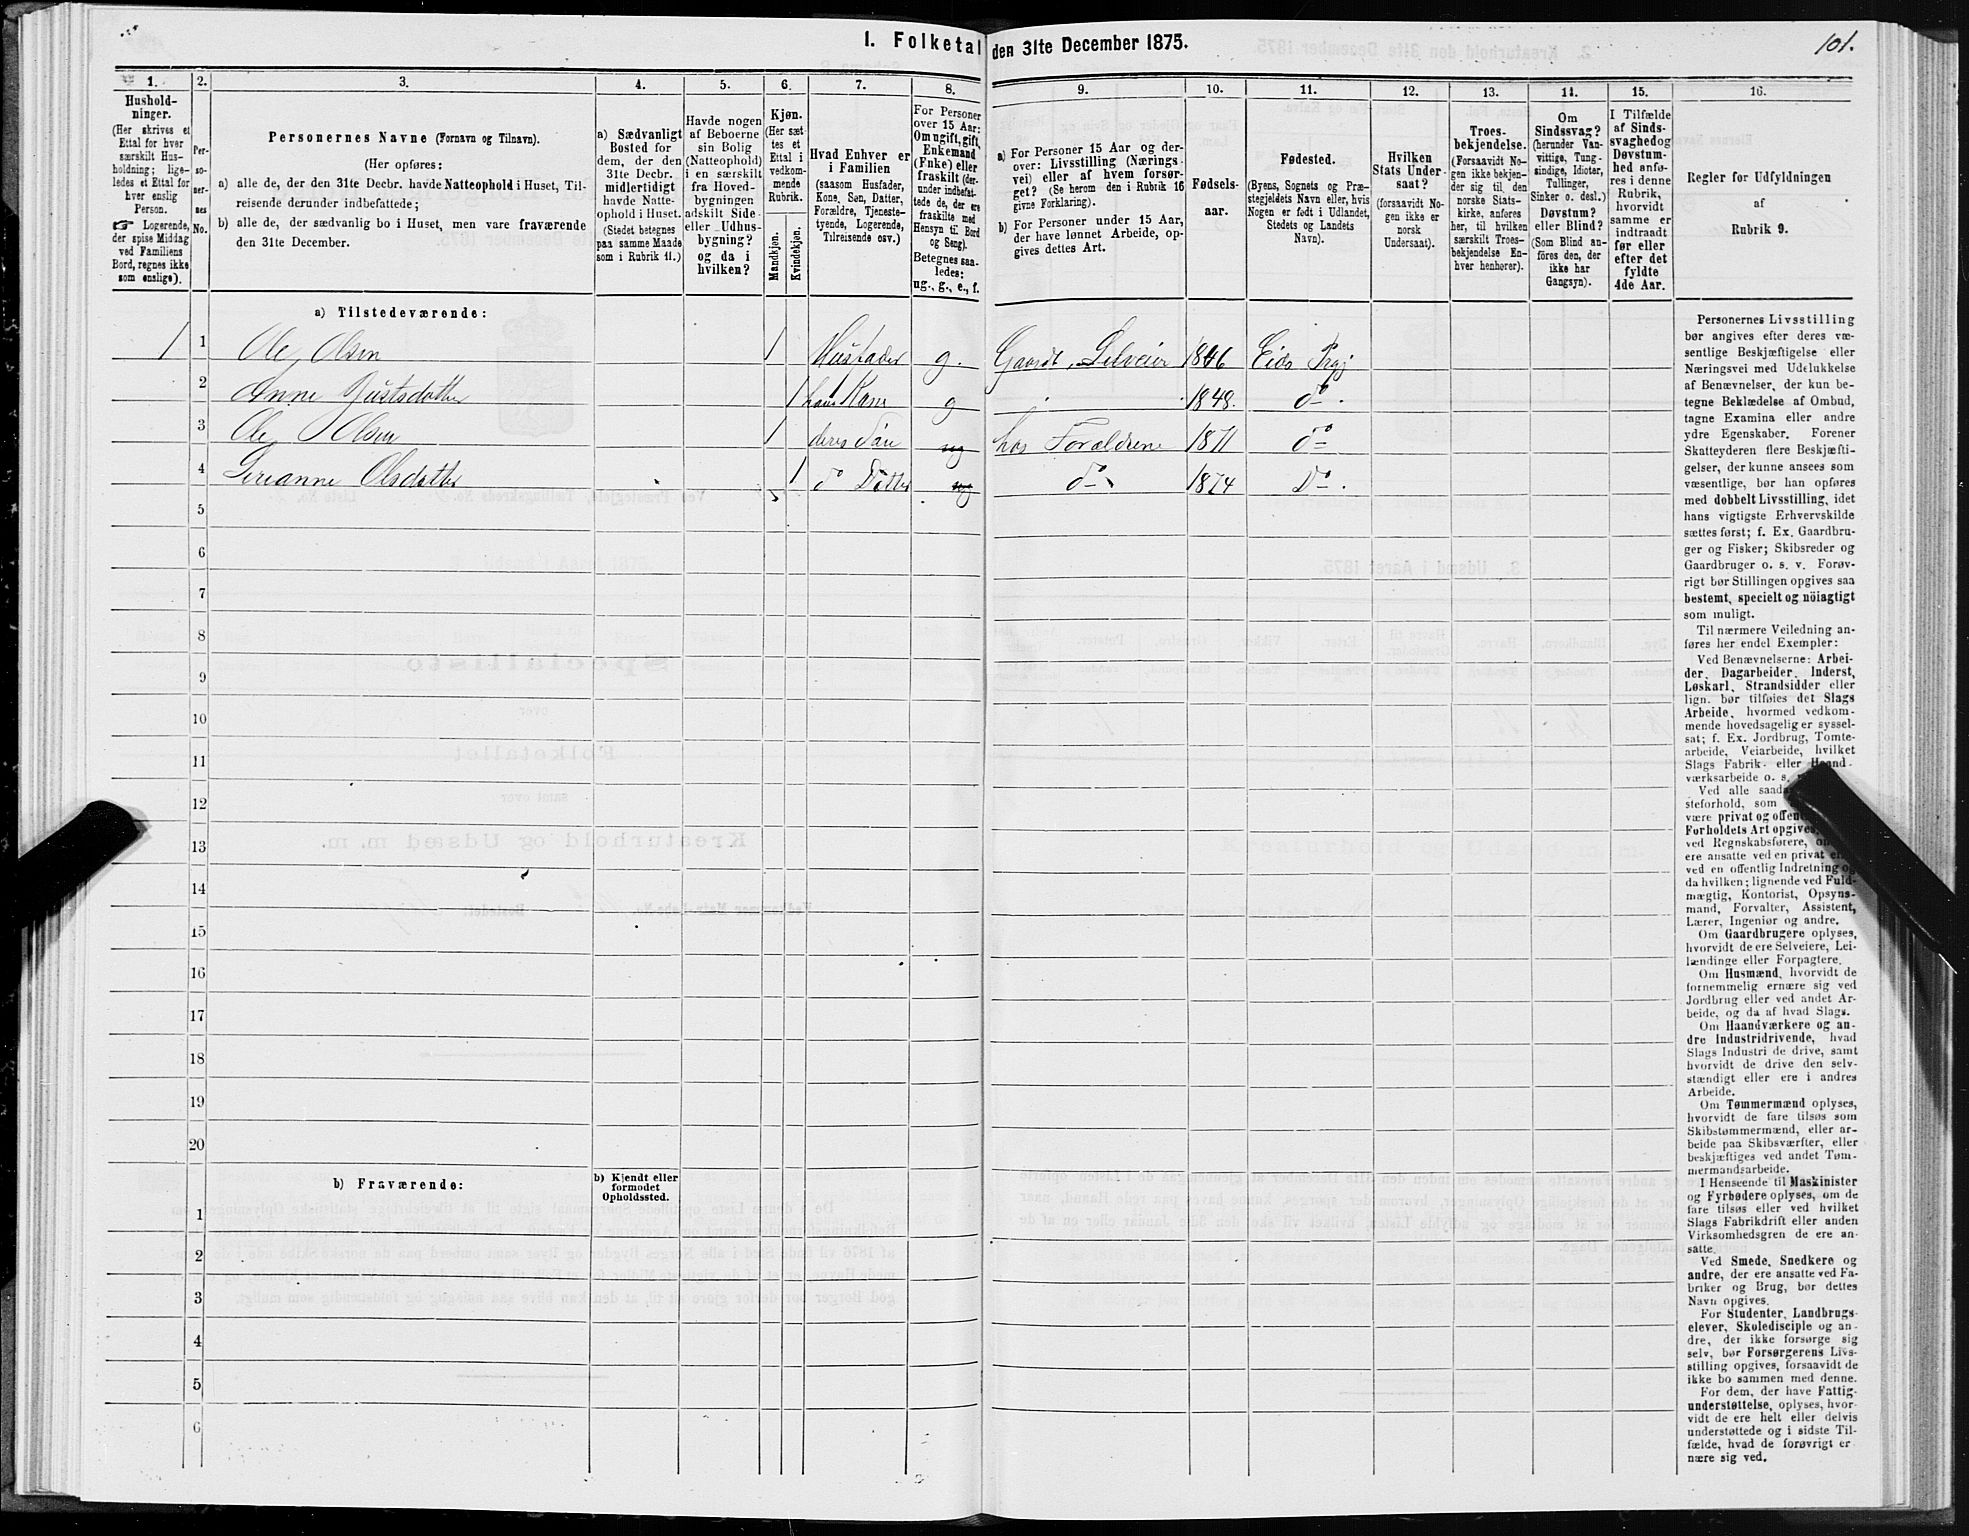 1. Folketal den 31te December 1875.
101.
1.
Hushold-
ninger.
(Her skrives et
Ettal for hver
særskilt Hus-
holdning; lige-
ledes et Ettal for
hver enslig
Person.
☞ Logerende,
der spise Middag
ved Familiens
Bord, regnes ikke
som enslige).
2.
Per-
so-
ner-
nes
No.
3.
Personernes Navne (Fornavn og Tilnavn).
(Her opføres:
a) alle de, der den 31te Decbr. havde Natteophold i Huset, Til-
reisende derunder indbefattede;
b) alle de, der sædvanlig bo i Huset, men vare fraværende
den 31te December.
4.
a) Sædvanligt
Bosted for
dem, der den
31te Decbr.
midlertidigt
havde Natte-
ophold i Huset.
(Stedet betegnes
paa samme Maade
som i Rubrik 11.)
5.
Havde nogen
af Beboerne
sin Bolig
(Natteophold)
i en særskilt
fra Hoved-
bygningen
adskilt Side-
eller Udhus-
bygning?
og da i
hvilken?
6.
Kjøn.
(Her sæt-
tes et
Ettal i
vedkom-
mende
Rubrik.
Mandkjøn.
Kvindekjøn.
7.
Hvad Enhver er
i Familien
(saasom Husfader,
Kone, Søn, Datter,
Forældre, Tjeneste-
tyende, Logerende,
Tilreisende osv.)
8.
For Personer
over 15 Aar:
Om ugift, gift,
Enkemand
(Enke) eller
fraskilt (der-
under indbefat-
tede de, der ere
fraskilte med
Hensyn til Bord
og Seng).
Betegnes saa-
ledes:
ug., g., e., f.
9.
a) For Personer 15 Aar og der-
over: Livsstilling (Nærings-
vei) eller af hvem forsør-
get? (Se herom den i Rubrik 16
givne Forklaring).
b) For Personer under 15 Aar,
der have lønnet Arbeide, op-
gives dettes Art.
10.
Fødsels-
aar.
11.
Fødested.
(Byens, Sognets og Præ-
stegjeldets Navn eller, hvis
Nogen er født i Udlandet,
Stedets og Landets
Navn).
12.
Hvilken
Stats Under-
saat?
(forsaavidt No-
gen ikke er
norsk
Undersaat).
13.
Troes-
bekjendelse.
(Forsaavidt No-
gen ikke bekjen-
der sig til den
norske Stats-
kirke, anføres
her, til hvilken
særskilt Troes-
bekjendelse En-
hver henhører).
14.
Om
Sindssvag?
(herunder Van-
vittige, Tung-
sindige, Idioter,
Tullinger,
Sinker o. desl.)
Døvstum?
eller Blind?
(Som Blind an-
føres den, der
ikke har
Gangsyn).
15.
I Tilfælde
af Sinds-
svaghed og
Døvstum-
hed anfø-
res i denne
Rubrik,
hvorvidt
samme er
indtraadt
før eller
efter det
fyldte
4de Aar.
16.
Regler for Udfyldningen
af
Rubrik 9.
a) Tilstedeværende:
1 1 Ole Olsen 1 Husfader g. Gaardb. Selveier 1846 Eids Prgj
2 Anne Justsdatter 1 hans Kone g 1848. do.
3 Ole Olsen 1 deres Søn ug hos Forældrene 1871 do
4 Olsdatter 1 do Datter ug do 1874 Do.
5
6
7
8
9
10
11
12
13
14
15
16
17
18
19
20
b) Fraværende:
b) Kjendt eller
formodet
Opholdssted.
1
2
3
4
5
6
Personernes Livsstilling
bør angives efter deres væ-
sentlige Beskjæftigelse eller
Næringsvei med Udelukkelse
af Benævnelser, der kun be-
tegne Beklædelse af Ombud,
tagne Examina eller andre
ydre Egenskaber. Forener
Skatteyderen flere Beskjæfti-
gelser, der kunne ansees som
væsentlige, bør han opføres
med dobbelt Livsstilling, idet
hans vigtigste Erhvervskilde
sættes først; f. Ex. Gaardbru-
ger og Fisker; Skibsreder og
Gaardbruger o. s. v. Forøv-
rigt bør Stillingen opgives saa
bestemt, specielt og nöiagtigt
som muligt.
Til nærmere Veiledning an-
føres her endel Exempler:
Ved Benævnelserne: Arbei-
der, Dagarbeider, Inderst,
Løskarl, Strandsidder eller
lign. bør tilføies det Slags
Arbeide, hvormed vedkom-
mende hovedsagelig er syssel-
sat; f. Ex. Jordbrug, Tomte-
arbeide, Veiarbeide, hvilket
Slags Fabrik- eller Haand-
værksarbeide o. s.
Ved alle saada
steforhold, som
være privat og offen
Forholdets Art opgives,
ved Regnskabsførere, om
ere ansatte ved en privat
ved en offentlig Indretning og
da hvilken; lignende ved Fuld-
mægtig, Kontorist, Opsyns-
mand, Forvalter, Assistent,
Lærer, Ingeniør og andre.
Om Gaardbrugere oplyses,
hvorvidt de ere Selveiere, Lei-
lændinge eller Forpagtere.
Om Husmænd, hvorvidt de
fornemmelig ernære sig ved
Jordbrug eller ved andet Ar-
beide, og da af hvad Slags.
Om Haandværkere og an-
dre Industridrivende, hvad
Slags Industri de drive, samt
hvorvidt de drive den selv-
stændigt eller ere i andres
Arbeide.
Om Tømmermænd oplyses,
hvorvidt de fare tilsøs som
Skibstømmermænd, eller ar-
beide paa Skibsværfter, eller
beskjæftiges ved andet Tøm-
mermandsarbeide.
I Henseende til Maskinister
og Fyrbødere oplyses, om de
fare tilsøs eller ved hvilket
Slags Fabrikdrift eller anden
Virksomhedsgren de ere an-
satte.
Ved Smede, Snedkere og
andre, der ere ansatte ved Fa-
briker og Brug, bør dettes
Navn opgives.
For Studenter, Landbrugs-
elever, Skoledisciple og an-
dre, der ikke forsørge sig
selv, bør Forsørgerens Livs-
stilling opgives, forsaavidt de
ikke bo sammen med denne.
For dem, der have Fattig-
understøttelse, oplyses, hvor-
vidt de ere helt eller delvis
understøttede og i sidste Til-
fælde, hvad de forøvrigt er-
nære sig ved.